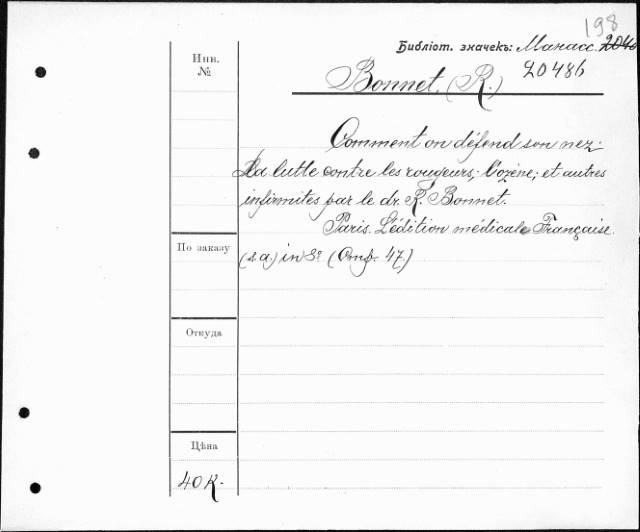 198
Библіот. значекъ: Манасс. 2040
20486
Инв.
№
Bonnet. (R.)
Comment on défend son nez.
La lutte contre les rougeurs, l'ozène; et autres
infirmites par le dr. R. Bonnet.
Paris. L'édition médicale Française.
(s. a) in 8° (Стр. 47.)
По заказу
Откуда
Цѣна
40 к.